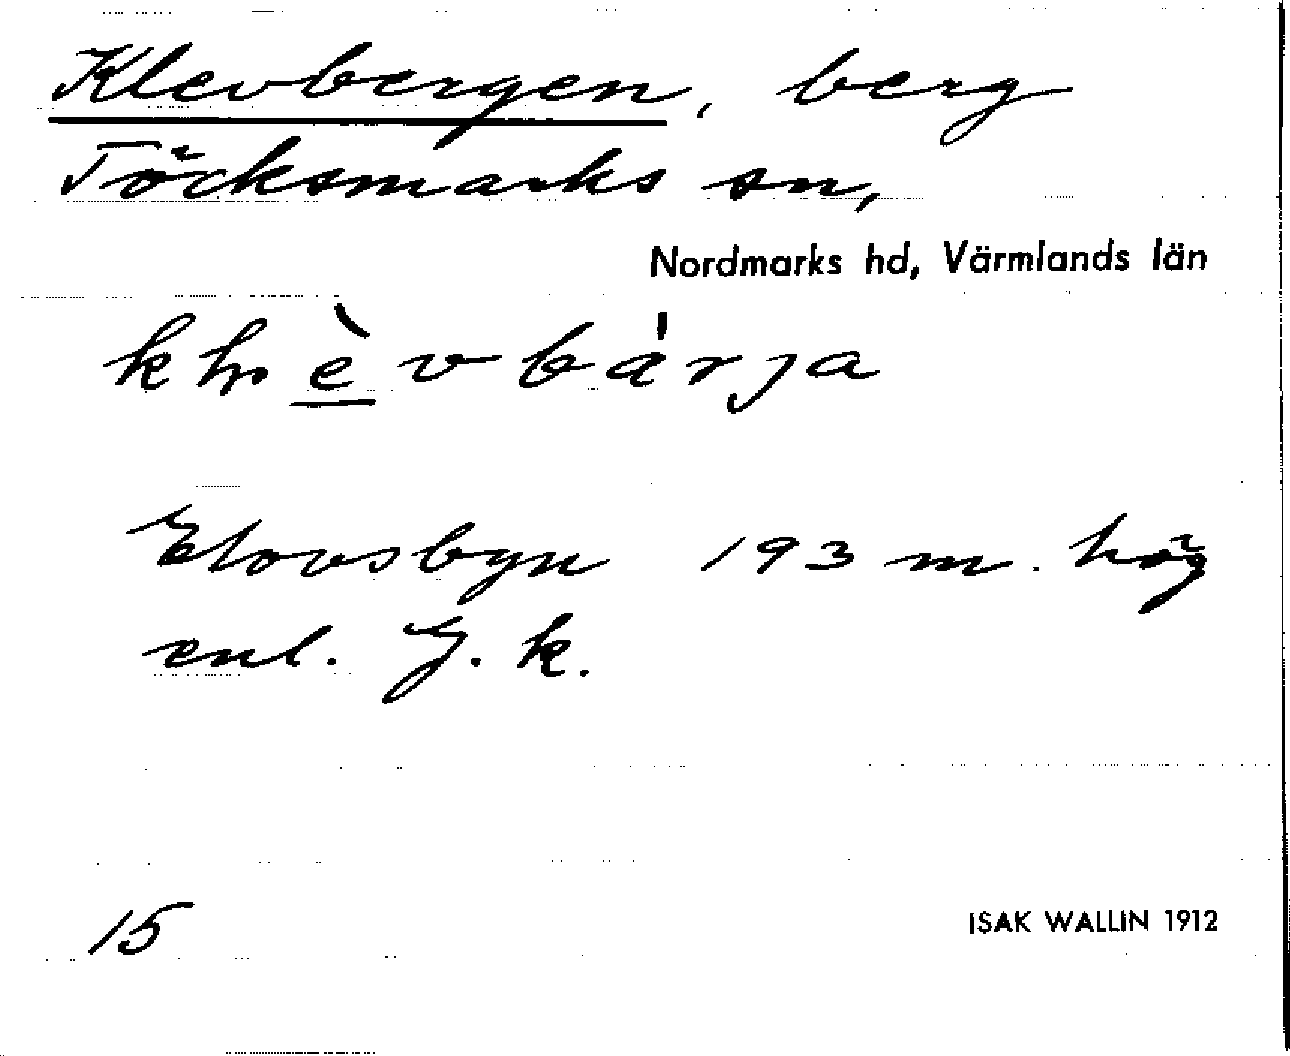 Klevbergen, berg
Töcksmarks sn,
Nordmarks hd, Värmlands län
Elovsbyn 193 m. hög
enl. G. k.
15
ISAK WALLIN 1912